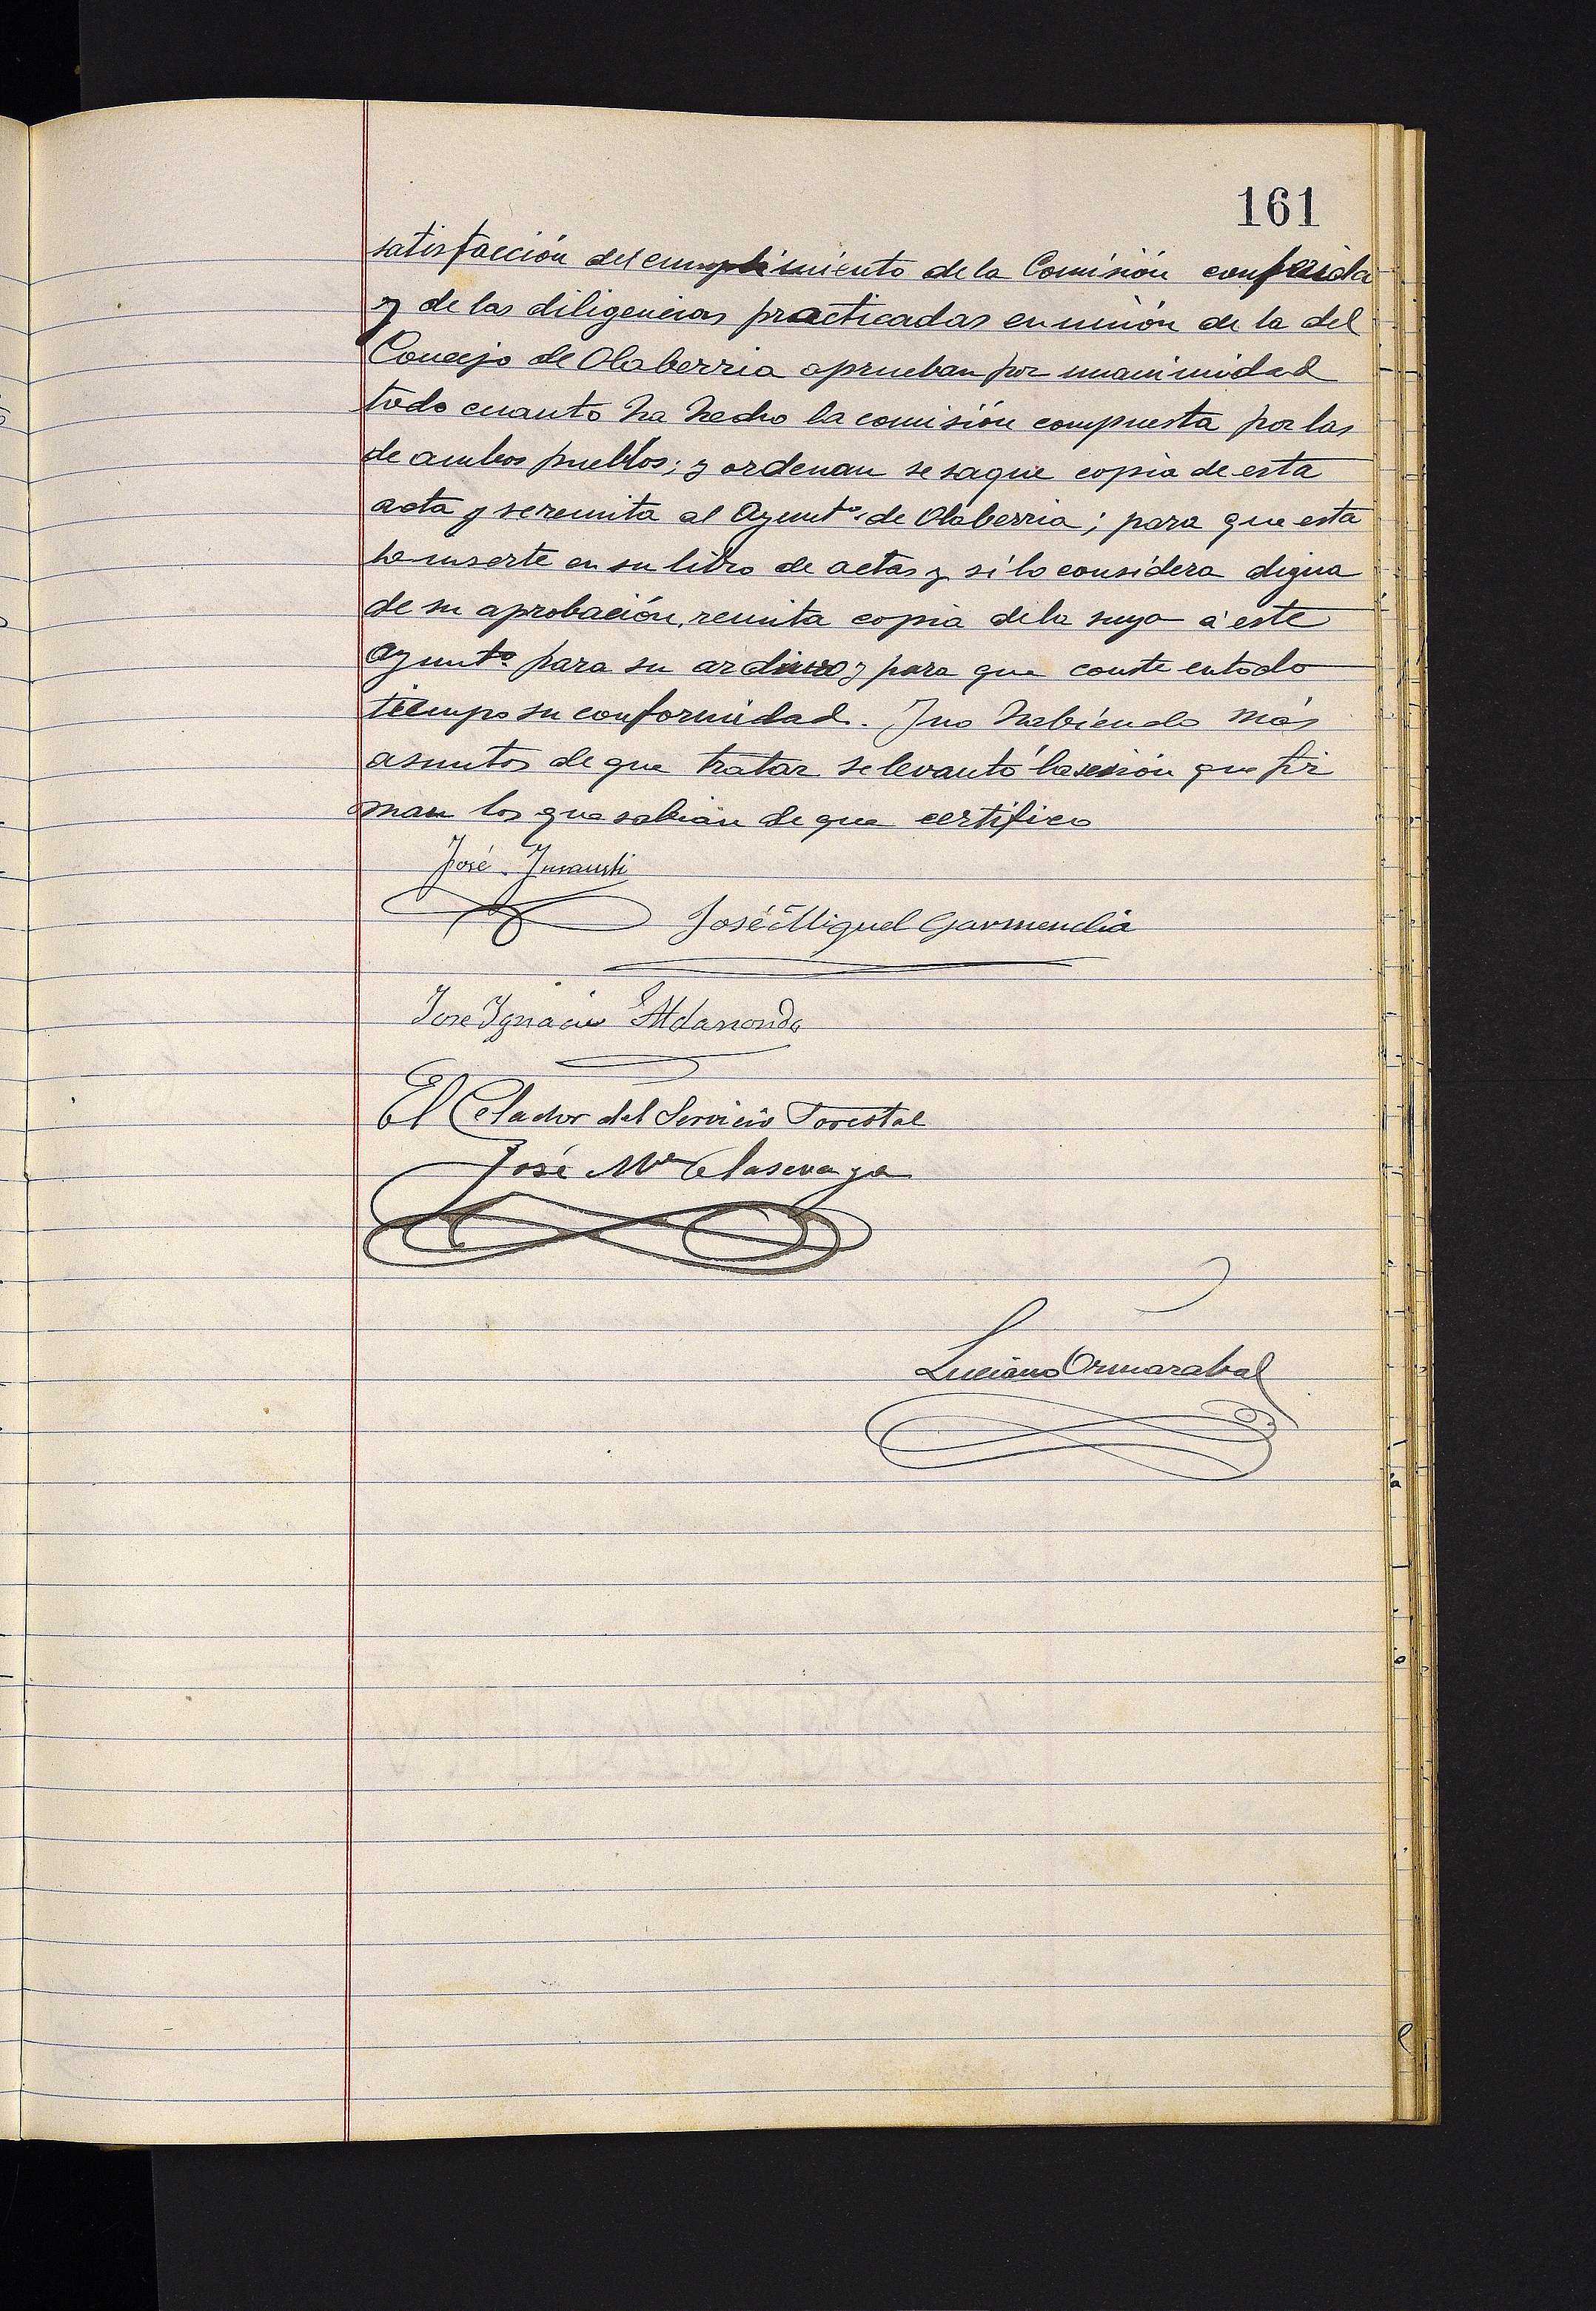 161
satisfacción del cumplimiento de la Comisión conferida
y de las diligencias practicadas en unión de la del
Concejo de Olaberria aprueban por unanimidad
todo cuanto ha hecho la comisión compuesta por las
de ambos pueblos; y ordenan se saque copia de esta
acta y se remita al Ayuntº. de Olaberria; para que esta
la inserte en su libro de actas y si lo considera digna
de su aprobación, remita copia de la suya a este
Ayuntº para su archivo y para que conste en todo
tiempo su conformidad. Y no habiendo más
asuntos de que tratar se levantó la sesión que fir
man los que sabian de que certifico
José Insausti
José Miguel Garmendia
Jose Ignacio Aldasoro
El Celador del Servicio Forestal
José Mª
Luciano Ormazabal